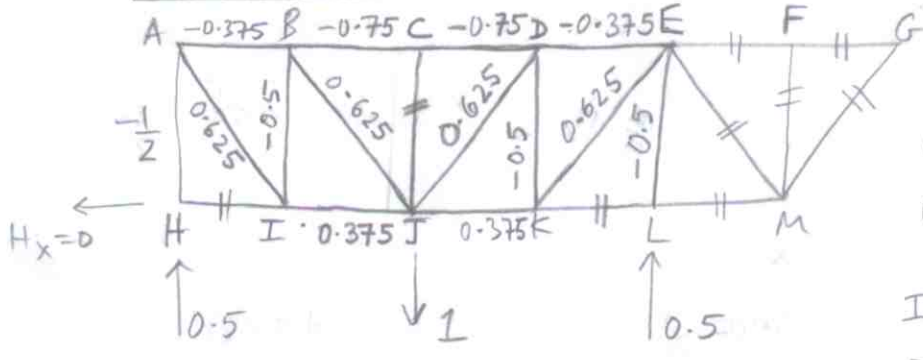 A -0.375 B -0.75 C -0.75 D -0.375 E F G
-1/2 0.625 -0.5 0.625 0.625 -0.5 0.625 -0.5
Hx=0 H I 0.375 J 0.375 K L M
0.5 1 0.5 I